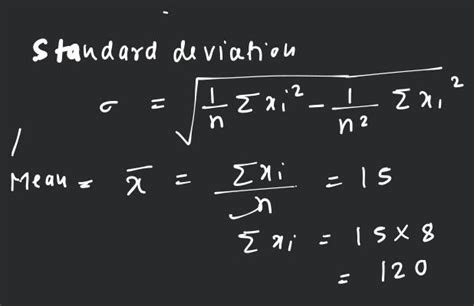 Standard deviation
σ = √(1/n Σxi² - 1/n² Σxi²)
Mean = x̄ = Σxi/n = 15
Σxi = 15 × 8
= 120